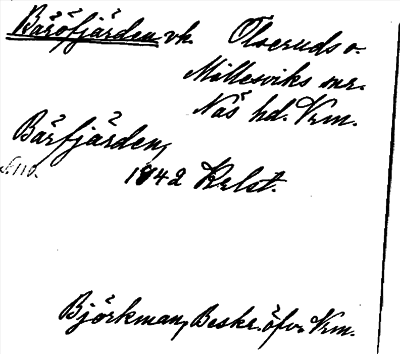 Båröfjärden vk. Olseruds o.
Millesviks snr.
Näs hd. Vrm.
Bärfjärden,
S. 110. 1842 Krlst.
Björkman, Beskr. öfv. Vrm.